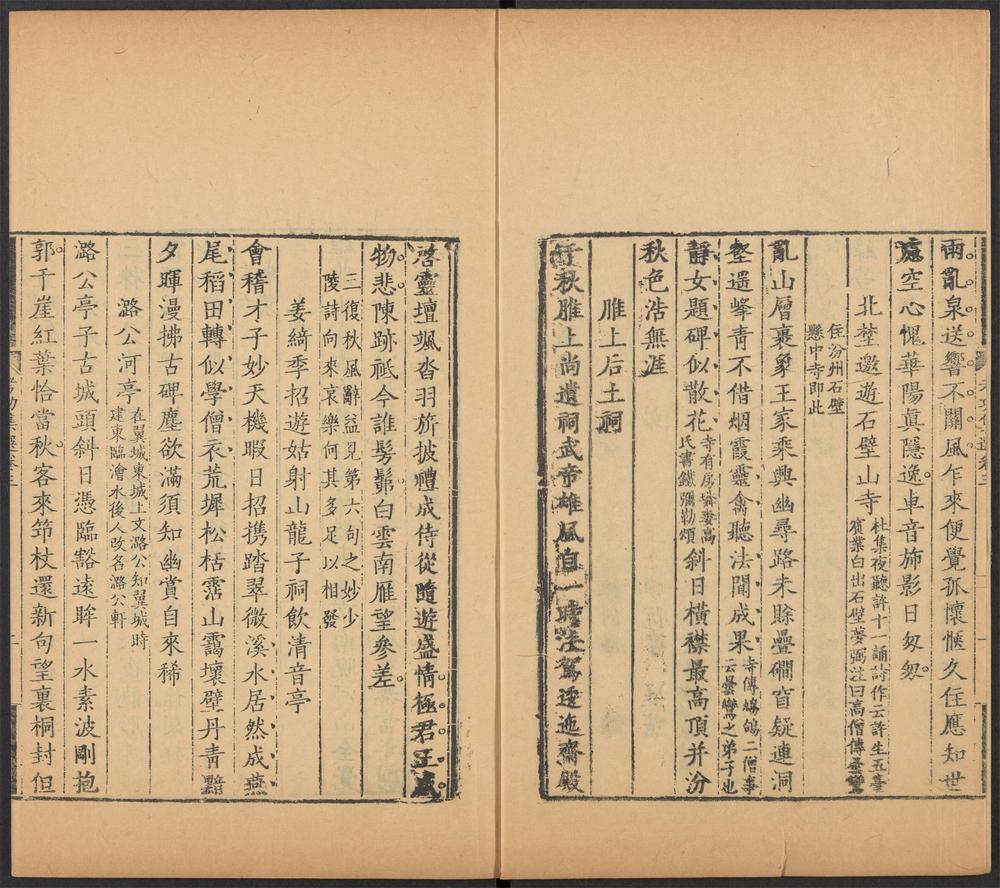 雨亂泉送響不關風乍來便覺孤懷愜久住應知世
慮空心愧華陽真隱逸車音斾影日匆匆
北埜邀遊石壁山寺
杜集夜聽許十一誦詩作云許生五臺
賓業白出石壁夢弼注曰高僧傳曇鸞
住汾州石壁
懸中寺即此
亂山層裏象王家乘興幽尋路未賒疊磵窅疑連洞
壑遥峯青不借烟霞靈禽聽法聞成果
寺傳鴿二僧事
云曇鸞之弟子也
靜女題碑似散花
寺有房嶙妻高
氏書鐵彌勒頌
斜日横襟最高頂并汾
秋色浩無涯
脽上后土祠
秋脽上尚遺祠武帝雄風自一時法駕逶迤齋殿
啓靈壇颯沓羽旂披禮成侍從隨遊盛情極君王
物悲陳跡祇今誰髣髴白雲南雁望參差
三復秋風辭益見第六句之妙少
陵詩向來哀樂何其多足以相發
姜綺季招遊姑射山龍子祠飲清音亭
會稽才子妙天機暇日招携踏翠微溪水居然成燕
尾稻田轉似學僧衣荒墀松栝霑山靄壞壁丹青黯
夕暉漫拂古碑塵欲滿須知幽賞自來稀
潞公河亭
在翼城東城上文潞公知翼城時
建東臨澮水後人改名潞公軒
潞公亭子古城頭斜日憑臨豁遠眸一水素波剛抱
郭千崖紅葉恰當秋客來筇杖還新句望裏桐封但